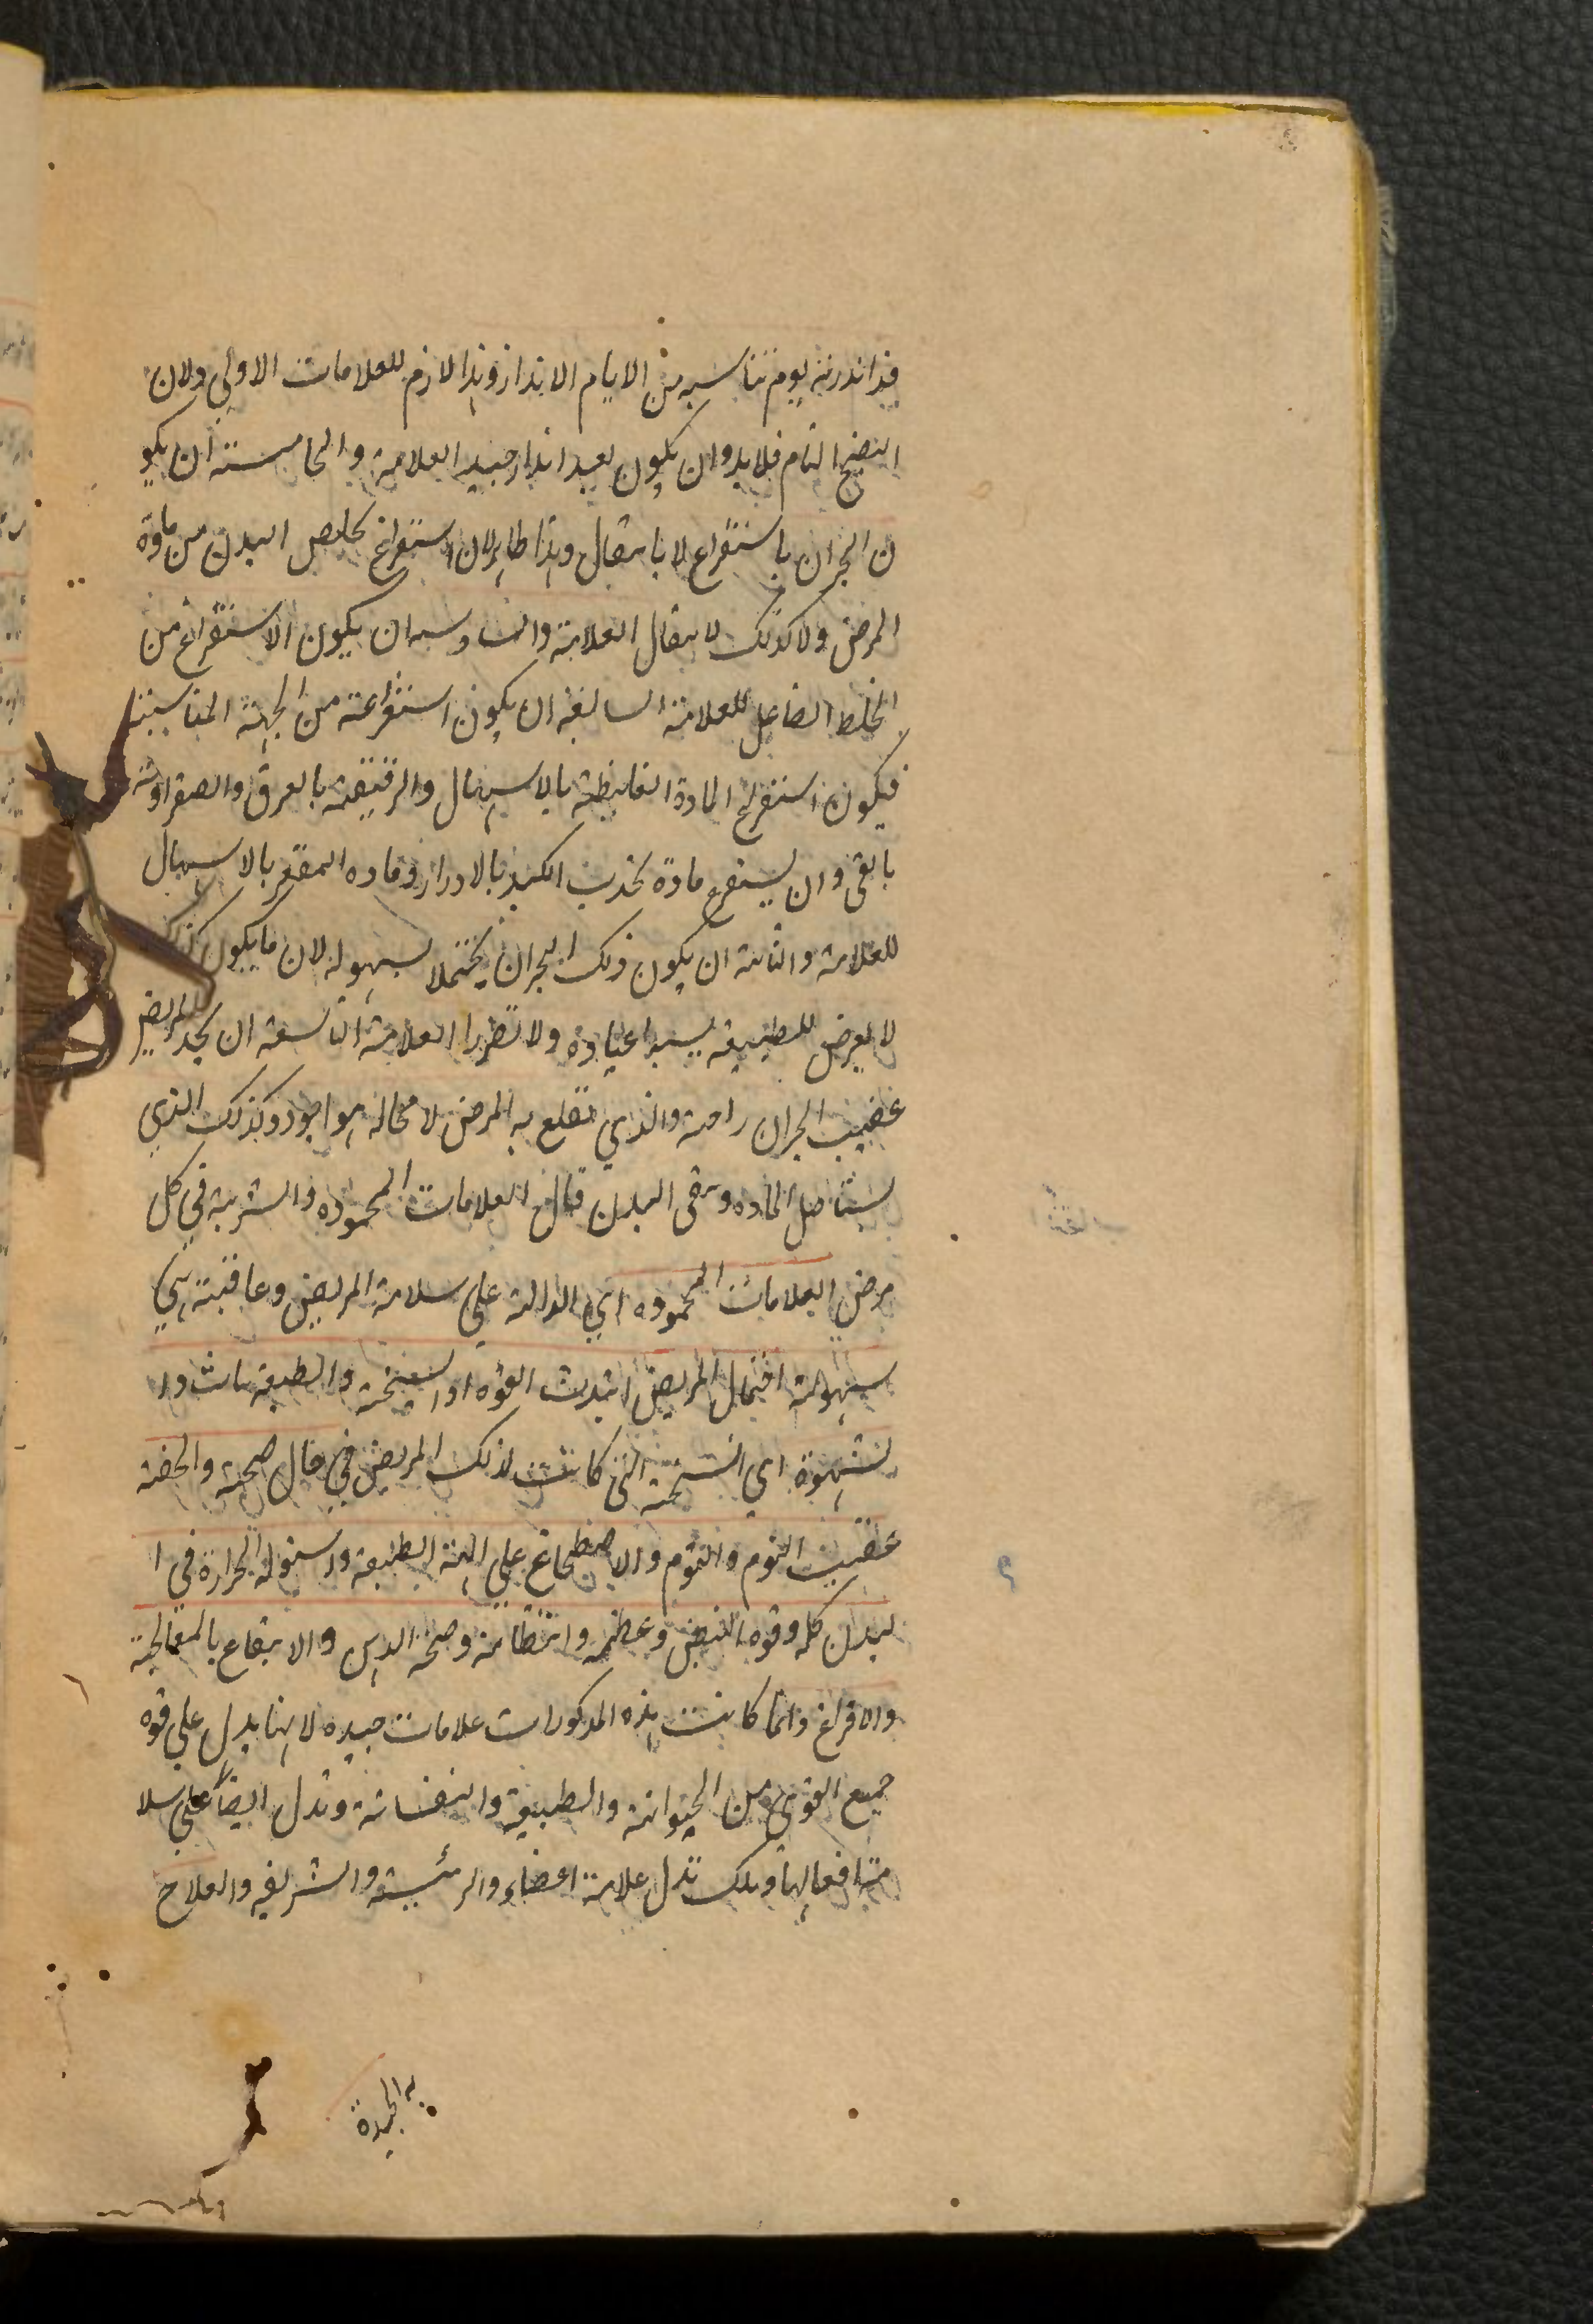 قد انذر به يوم يناسبه من الايام الانذار وهذا لازم للعلامات الاولي ولان
النضج التام فلا بد وان يكون بعيد انذار جيد العلامة والخامسة ان يكو
ن البحران باستفراغ لا بانتقال وهذا ظاهر لان استفراغ يخلص البدن من مادة
المرض ولا كذلك لانتقال العلامة والسادسه ان يكون الاستفراغ من
الخلط الفاعل للعلامة السابعة ان يكون استفراغه من الجهة المناسبة
فيكون استفراغ المادة الغليظة بالاسهال والرقيقة بالعرق والصفراوية
بالقي وان يستفرغ مادة محدب الكبد بالادرار وماده المقعر بالاسهال
للعلامة والثامنة ان يكون ذلك البحران محتملا بسهولة لان ما يكون كذلك
لا يعرض للطبيعة بسببه اعياء ولا تضررا العلامة التاسعة ان يجد المريض
عقيب البحران راحة والذي تقلع به المرض لا محالة هو اجود وكذلك الذي
يستاصل الماده وينقي البدن قال العلامات المحموده والشربة في كل
مرض العلامات المحموده اي الدالة علي سلامة المريض وعاقبته هي
سهولة احتمال المريض اثبت القوه او السحنة والطبيعة ثبات وا
لشهوة اي السحنة التي كانت لذلك المريض في حال صحته والخفة
عقيب النوم والنوم والاضطجاع علي الهيئة الطبيعية واستواء الحرارة في ا
لبدن كله وقوه النبض وعظمه وانتظامه وصحة الذهن والانتفاع بالمعالجة
والافراغ وانما كانت هذه المذكورات علامات جيده لانها يدل علي قوه
جميع القوي من الحيوانية والطبيعية والنفسانية وتدل ايضا علي سلا
مة افعالها وتلك تدل علامة اعضاء والرئيسة والشريفه والعلاج
به الجيدة